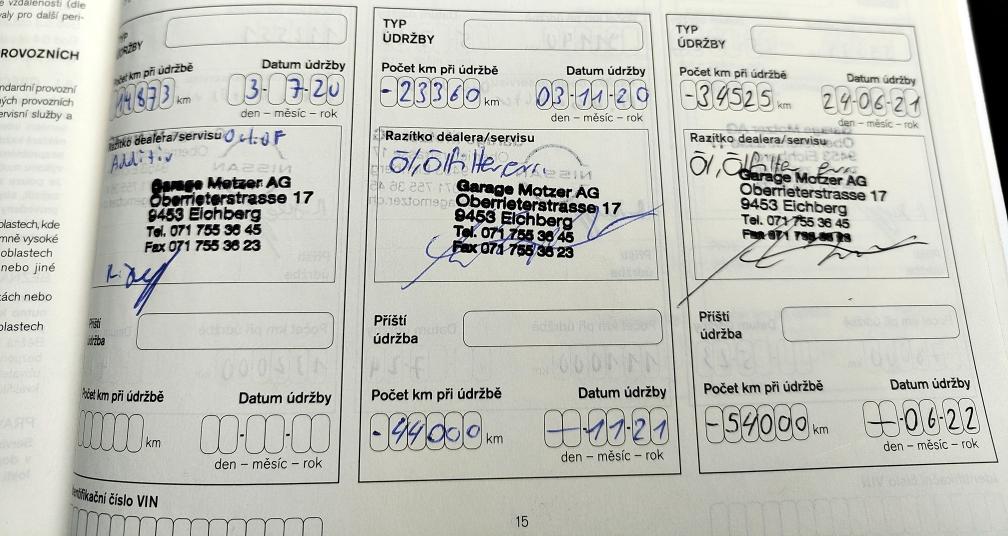 vzdálenosti (dle
valy pro další peri-
ROVOZNÍCH
ndardní provozní
ných provozních
ervisní služby a
blastech, kde
mně vysoké
oblastech
nebo jiné
kách nebo
blastech
TYP
ÚDRŽBY
Počet km při údržbě
Datum údržby
14873 km
3-7-20
den – měsíc – rok
Razítko dealera/servisu
Additiv
Garage Motzer AG
Oberrieterstrasse 17
9453 Eichberg
Tel. 071 755 36 45
Fax 071 755 36 23
Příští
údržba
Počet km při údržbě
Datum údržby
km
den – měsíc – rok
Identifikační číslo VIN
TYP
ÚDRŽBY
Počet km při údržbě
Datum údržby
-23360 km
03-11-20
den – měsíc – rok
Razítko dealera/servisu
Öl, Ölfilter ern.
Garage Motzer AG
Oberrieterstrasse 17
9453 Eichberg
Tel. 071 755 36 45
Fax 071 755 36 23
Příští
údržba
Počet km při údržbě
Datum údržby
-44000 km
—-11-21
den – měsíc – rok
TYP
ÚDRŽBY
Počet km při údržbě
Datum údržby
-34525 km
24-06-21
den – měsíc – rok
Razítko dealera/servisu
Öl, Ölfilter ern.
Garage Motzer AG
Oberrieterstrasse 17
9453 Eichberg
Tel. 071 755 36 45
Fax 071 755 36 23
Příští
údržba
Počet km při údržbě
Datum údržby
-54000 km
—-06-22
den – měsíc – rok
15